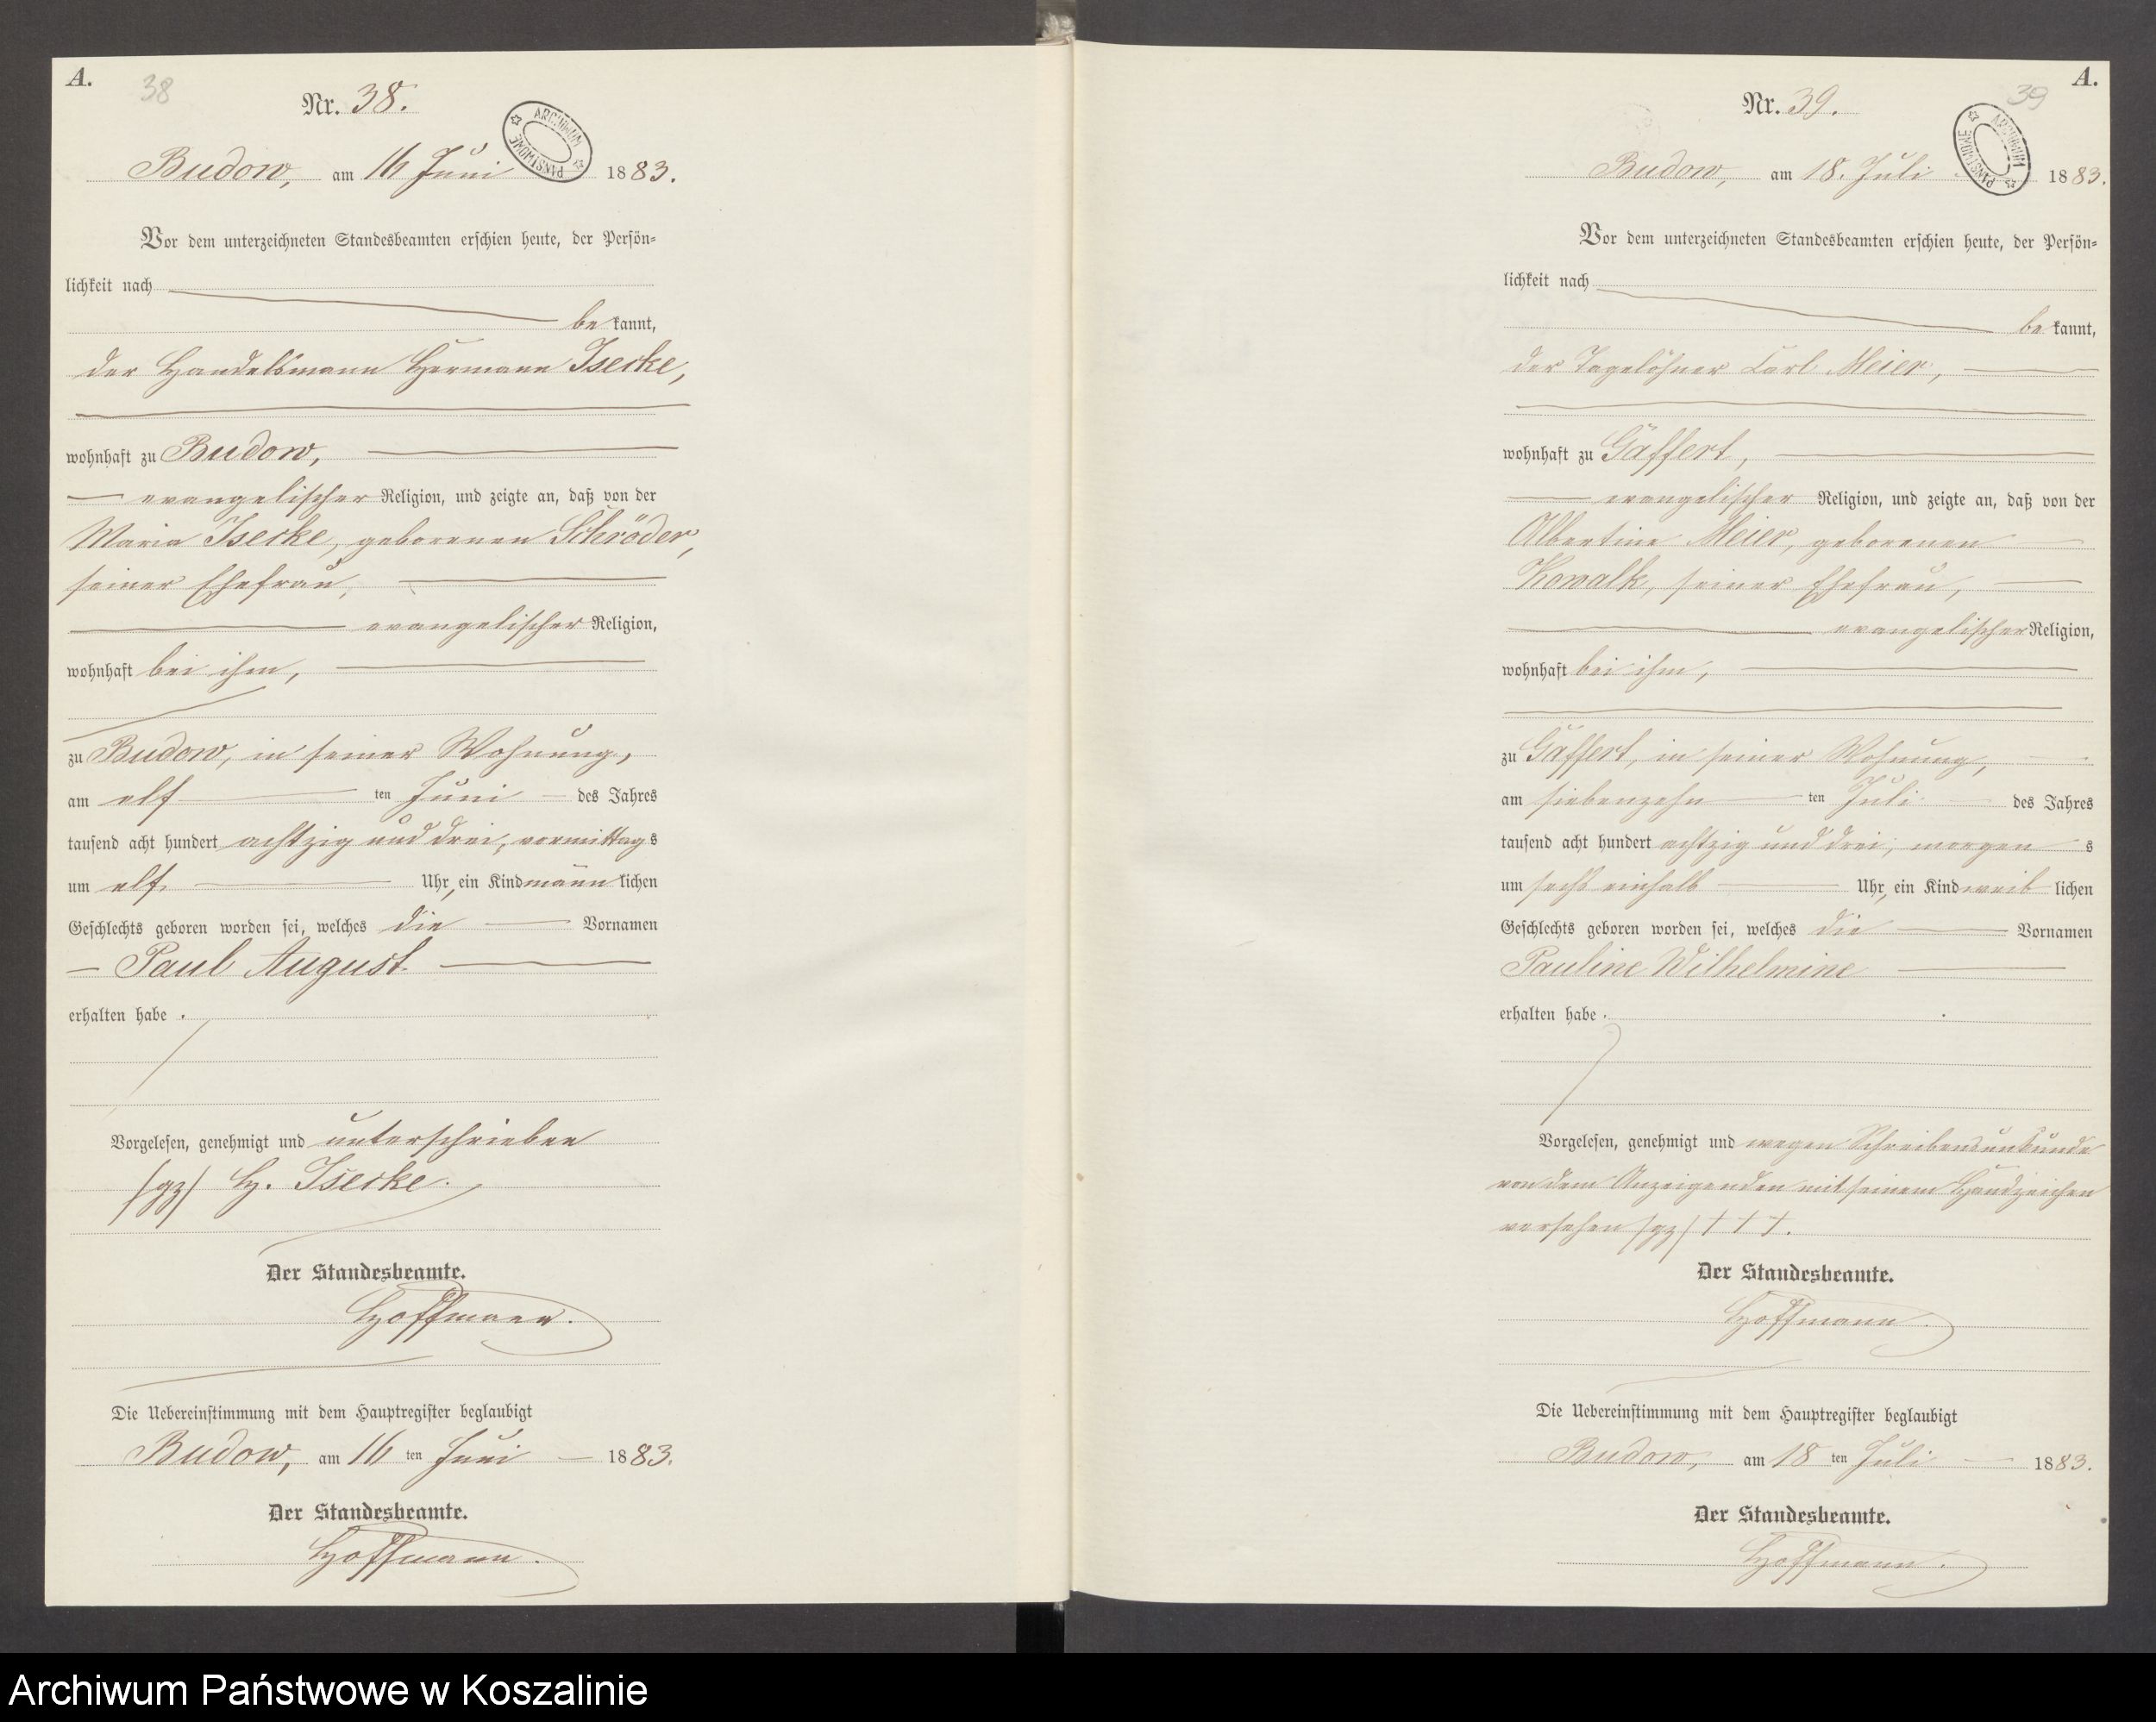 A.
38
Nr. 38.
ARCHIWUM PAŃSTWOWE
Budow, am 16 Juni 1883.
Vor dem unterzeichneten Standesbeamten erschien heute, der Persön-
lichkeit nach
be kannt,
der Handelsmann Hermann Isecke,
wohnhaft zu Budow,
evangelischer Religion, und zeigte an, daß von der
Maria Isecke, geborenen Schröder,
seiner Ehefrau,
evangelischer Religion,
wohnhaft bei ihm,
zu Budow, in seiner Wohnung,
am elf ten Juni des Jahres
tausend acht hundert achtzig und drei, vormittag s
um elf Uhr, ein Kind männ lichen
Geschlechts geboren worden sei, welches die Vornamen
Paul August
erhalten habe.
Vorgelesen, genehmigt und unterschrieben
/gz/ H. Isecke.
Der Standesbeamte.
Hoffmann.
Die Uebereinstimmung mit dem Hauptregister beglaubigt
Budow, am 16 ten Juni 1883.
Der Standesbeamte.
Hoffmann.
A.
39
Nr. 39.
ARCHIWUM PAŃSTWOWE
Budow, am 18. Juli 1883.
Vor dem unterzeichneten Standesbeamten erschien heute, der Persön-
lichkeit nach
be kannt,
der Tagelöhner Carl Meier,
wohnhaft zu Gaffert,
evangelischer Religion, und zeigte an, daß von der
Albertine Meier, geborenen
Kowalk, seiner Ehefrau,
evangelischer Religion,
wohnhaft bei ihm,
zu Gaffert, in seiner Wohnung,
am siebenzehn ten Juli des Jahres
tausend acht hundert achtzig und drei, morgen s
um sechs einhalb Uhr, ein Kind weib lichen
Geschlechts geboren worden sei, welches die Vornamen
Pauline Wilhelmine
erhalten habe.
Vorgelesen, genehmigt und wegen Schreibensunkunde
von dem Anzeigenden mit seinem Handzeichen
versehen /gz/ † † †.
Der Standesbeamte.
Hoffmann.
Die Uebereinstimmung mit dem Hauptregister beglaubigt
Budow, am 18 ten Juli 1883.
Der Standesbeamte.
Hoffmann.
Archiwum Państwowe w Koszalinie